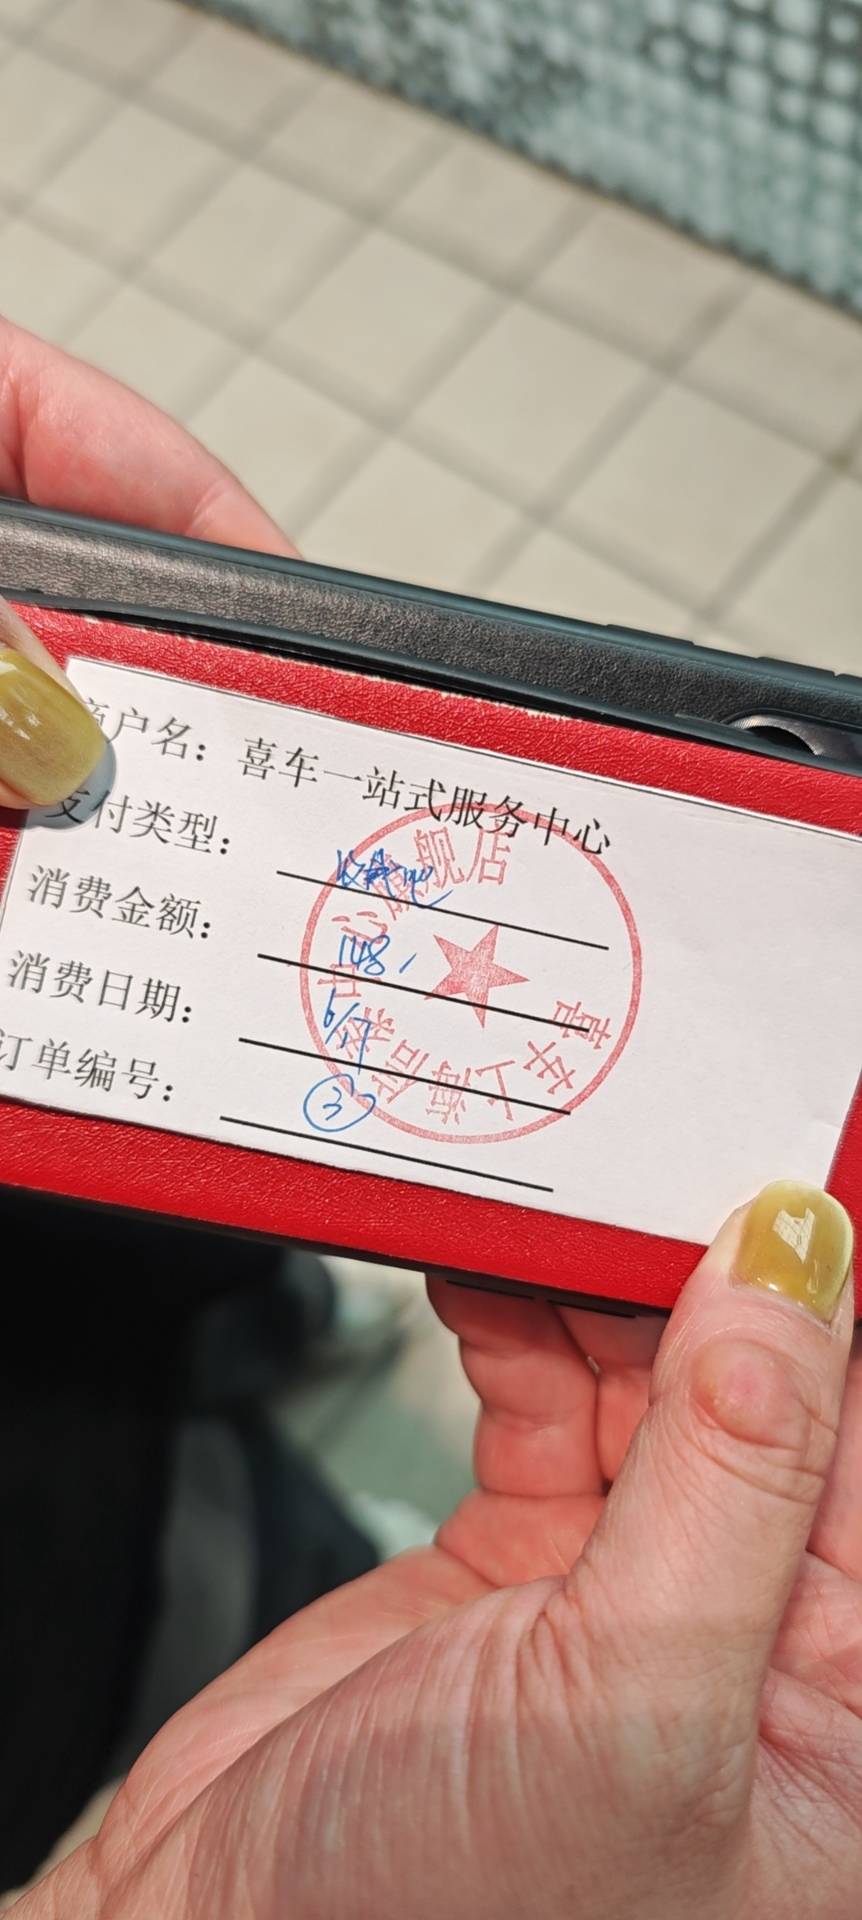 商户名：喜车一站式服务中心
支付类型：收钱吧
消费金额：148
消费日期：6/
订单编号：③
喜车上海
中心旗舰店